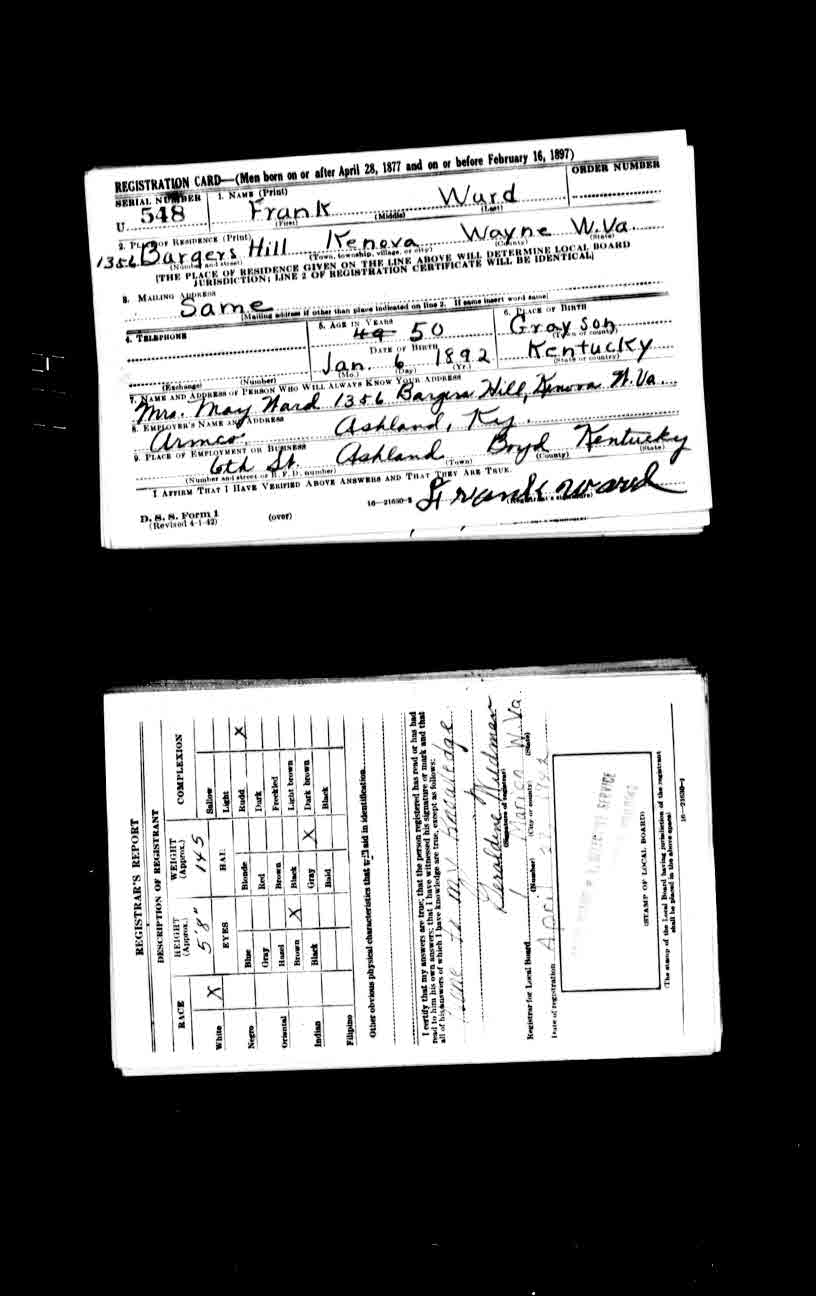 REGISTRATION CARD—(Men born on or after April 28, 1877 and on or before February 16, 1897)
SERIAL NUMBER 1. NAME (Print) ORDER NUMBER
U 548 Frank Ward
(First) (Middle) (Last)
2. PLACE OF RESIDENCE (Print)
1356 Bargers Hill Kenova Wayne W. Va.
(Number and street) (Town, township, village, or city) (County) (State)
[THE PLACE OF RESIDENCE GIVEN ON THE LINE ABOVE WILL DETERMINE LOCAL BOARD
JURISDICTION; LINE 2 OF REGISTRATION CERTIFICATE WILL BE IDENTICAL]
3. MAILING ADDRESS
Same
[Mailing address if other than place indicated on line 2. If same insert word same]
4. TELEPHONE 5. AGE IN YEARS 6. PLACE OF BIRTH
49 50 Grayson
DATE OF BIRTH (Town or county)
Jan. 6 1892 Kentucky
(Exchange) (Number) (Mo.) (Day) (Yr.) (State or country)
7. NAME AND ADDRESS OF PERSON WHO WILL ALWAYS KNOW YOUR ADDRESS
Mrs. May Ward 1356 Bargers Hill, Kenova W. Va.
8. EMPLOYER'S NAME AND ADDRESS
Armco Ashland, Ky.
9. PLACE OF EMPLOYMENT OR BUSINESS
6th St. Ashland Boyd Kentucky
(Number and street or R. F. D. number) (Town) (County) (State)
I AFFIRM THAT I HAVE VERIFIED ABOVE ANSWERS AND THAT THEY ARE TRUE.
Frank Ward
D. S. S. Form 1 16—21630-2 (Registrant's signature)
(Revised 4-1-42) (over)
REGISTRAR'S REPORT
DESCRIPTION OF REGISTRANT
RACE HEIGHT (Approx.) WEIGHT (Approx.) COMPLEXION
5'8" 145
EYES HAI
White X Blue Blonde Sallow
Light
Negro Gray Red Rudd X
Dark
Oriental Hazel Brown Freckled
Brown X Black Light brown
Indian Black Gray X Dark brown
Bald Black
Filipino
Other obvious physical characteristics that will aid in identification
I certify that my answers are true; that the person registered has read or has had
read to him his own answers; that I have witnessed his signature or mark and that
all of his answers of which I have knowledge are true, except as follows:
to my knowledge
Geraldine
(Signature of registrar)
Registrar for Local Board 1 W. Va.
(Number) (City or county) (State)
Date of registration April 1942
SELECTIVE SERVICE
(STAMP OF LOCAL BOARD)
(The stamp of the Local Board having jurisdiction of the registrant
shall be placed in the above space)
16—21630-1